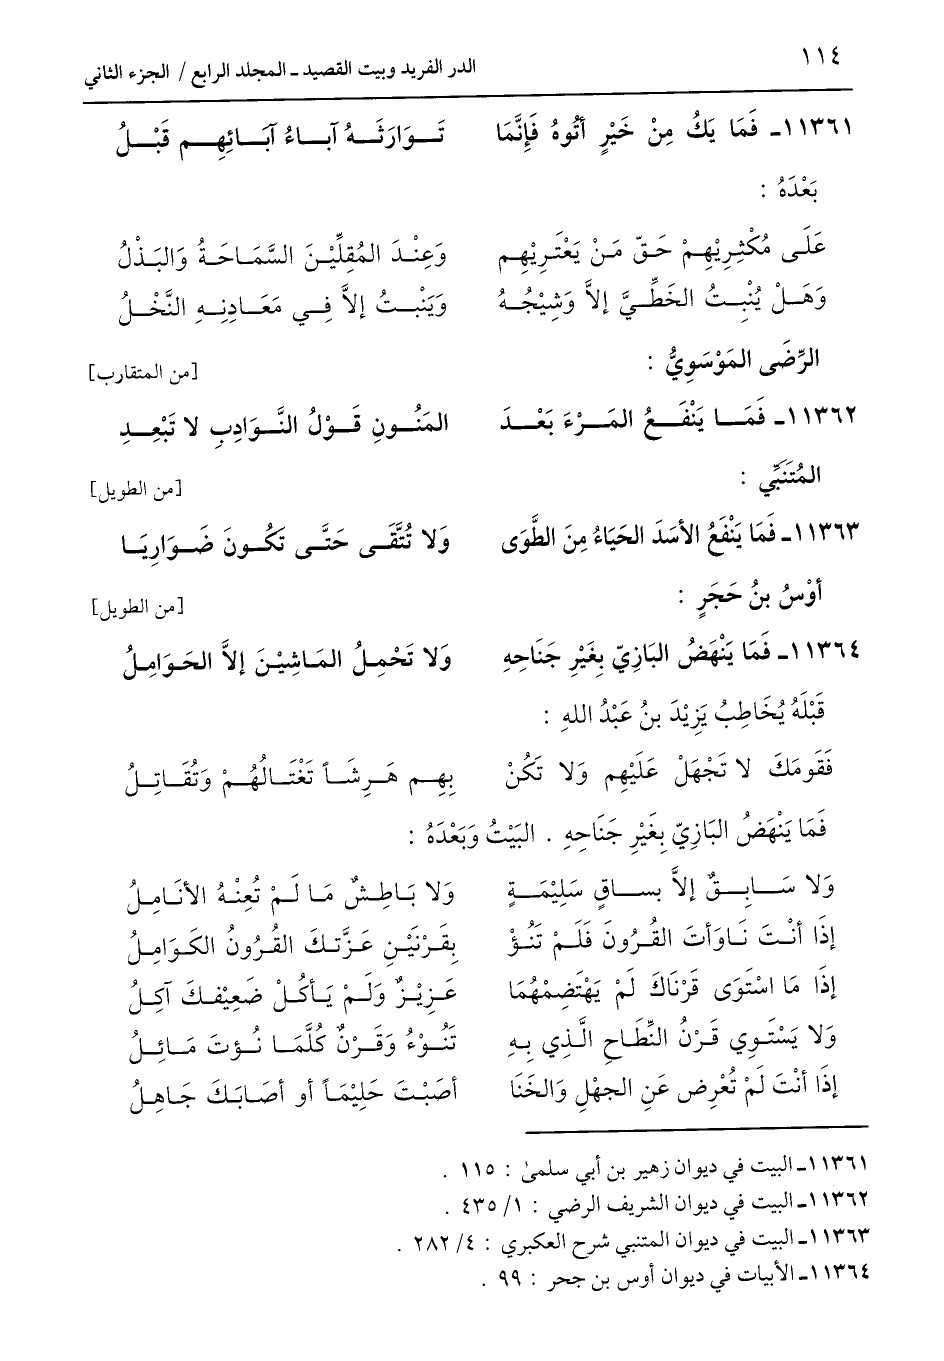 ١١٤
الدر الفريد وبيت القصيد ـ المجلد الرابع / الجزء الثاني
١١٣٦١ـ فَمَا يَكُ مِنْ خَيْرٍ أَتُوهُ فَإِنَّمَا تَوَارَثَهُ آبَاءُ آبَائِهِم قَبْلُ
بَعْدَهُ :
عَلَى مُكْثِرِيْهِمْ حَقّ مَنْ يَعْتَرِيْهِم وَعِنْدَ المُقِلِّيْنَ السَّمَاحَةُ وَالبَذْلُ
وَهَلْ يُنْبِتُ الخَطِّيَّ إلاَّ وَشِيْجُهُ وَيَنْبتُ إلاَّ فِي مَعَادِنِهِ النَّخْلُ
الرِّضَى المَوْسَوِيُّ :
[من المتقارب]
١١٣٦٢ـ فَمَا يَنْفَعُ المَرْءَ بَعْدَ المَنُونِ قَوْلُ النَّوَادِبِ لا تَبْعِدِ
المُتَنَبِّي :
[من الطويل]
١١٣٦٣ـ فَمَا يَنْفَعُ الأسَدَ الحَيَاءُ مِنَ الطَّوَى وَلا تُتَّقَى حَتَّى تَكُونَ ضَوَارِيَا
أوْسُ بنُ حَجَرٍ :
[من الطويل]
١١٣٦٤ـ فَمَا يَنْهَضُ البَازِيّ بِغَيْرِ جَنَاحِهِ وَلا تَحْمِلُ المَاشِيْنَ إلاَّ الحَوَامِلُ
قَبْلَهُ يُخَاطِبُ يَزِيْدَ بنُ عَبْدُ اللهِ :
فَقَومَكَ لا تَجْهَلْ عَلَيْهِم وَلا تَكُنْ بِهِم هَرِشَاً تَغْتَالُهُمْ وَتُقَاتِلُ
فَمَا يَنْهَضُ البَازِيّ بِغَيْرِ جَنَاحِهِ . البَيْتُ وَبَعْدَهُ :
وَلا سَابِقٌ إلاَّ بسَاقٍ سَلِيْمَةٍ وَلا بَاطِشٌ مَا لَمْ تُعِنْهُ الأنَامِلُ
إذَا أنْتَ نَاوَأتَ القُرُونَ فَلَمْ تَنُؤْ بِقَرْنَيْنِ عَزَّتكَ القُرُونُ الكَوَامِلُ
إذَا مَا اسْتَوَى قَرْنَاكَ لَمْ يَهْتَضِمْهُمَا عَزِيْزٌ وَلَمْ يَأكُلْ ضَعِيْفكَ آكِلُ
وَلا يَسْتَوِي قَرْنُ النِّطَاحِ الَّذِي بِهِ تَنُوْءُ وَقَرْنٌ كُلَّمَا نُؤتَ مَائِلُ
إذَا أنْتَ لَمْ تُعْرِض عَنِ الجهْلِ وَالخَنَا أصَبْتَ حَلِيْمَاً أو أصَابَكَ جَاهِلُ
١١٣٦١ـ البيت في ديوان زهير بن أبي سلمىٰ : ١١٥ .
١١٣٦٢ـ البيت في ديوان الشريف الرضي : ١/ ٤٣٥ .
١١٣٦٣ـ البيت في ديوان المتنبي شرح العكبري : ٤/ ٢٨٢ .
١١٣٦٤ـ الأبيات في ديوان أوس بن جحر : ٩٩ .